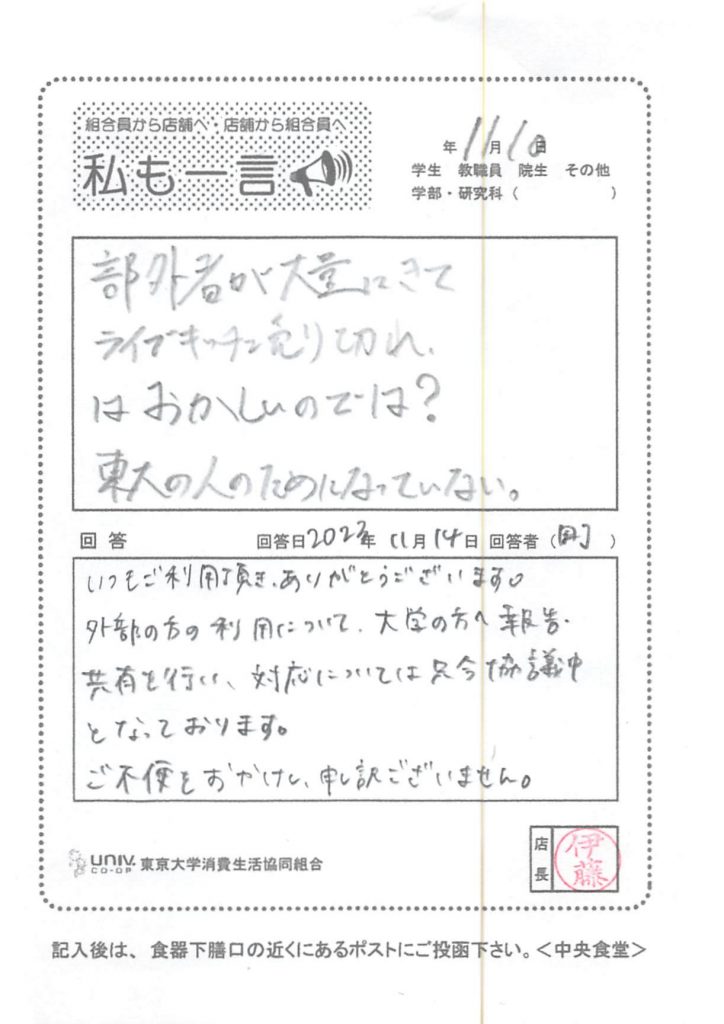 組合員から店舗へ・店舗から組合員へ
私も一言
年11月10日
学生 教職員 院生 その他
学部・研究科 ( )
部外者が大量にきて
ライブキッチン売り切れ、
はおかしいのでは?
東大の人のためになっていない。
回答 回答日2023年 11月14日 回答者 ( )
いつもご利用頂き、ありがとうございます。
外部の方の利用について、大学の方へ報告・
共有を行い、対応については只今協議中
となっております。
ご不便をおかけし、申し訳ございません。
UNIV. CO-OP 東京大学消費生活協同組合
店長 伊藤
記入後は、食器下膳口の近くにあるポストにご投函下さい。<中央食堂>